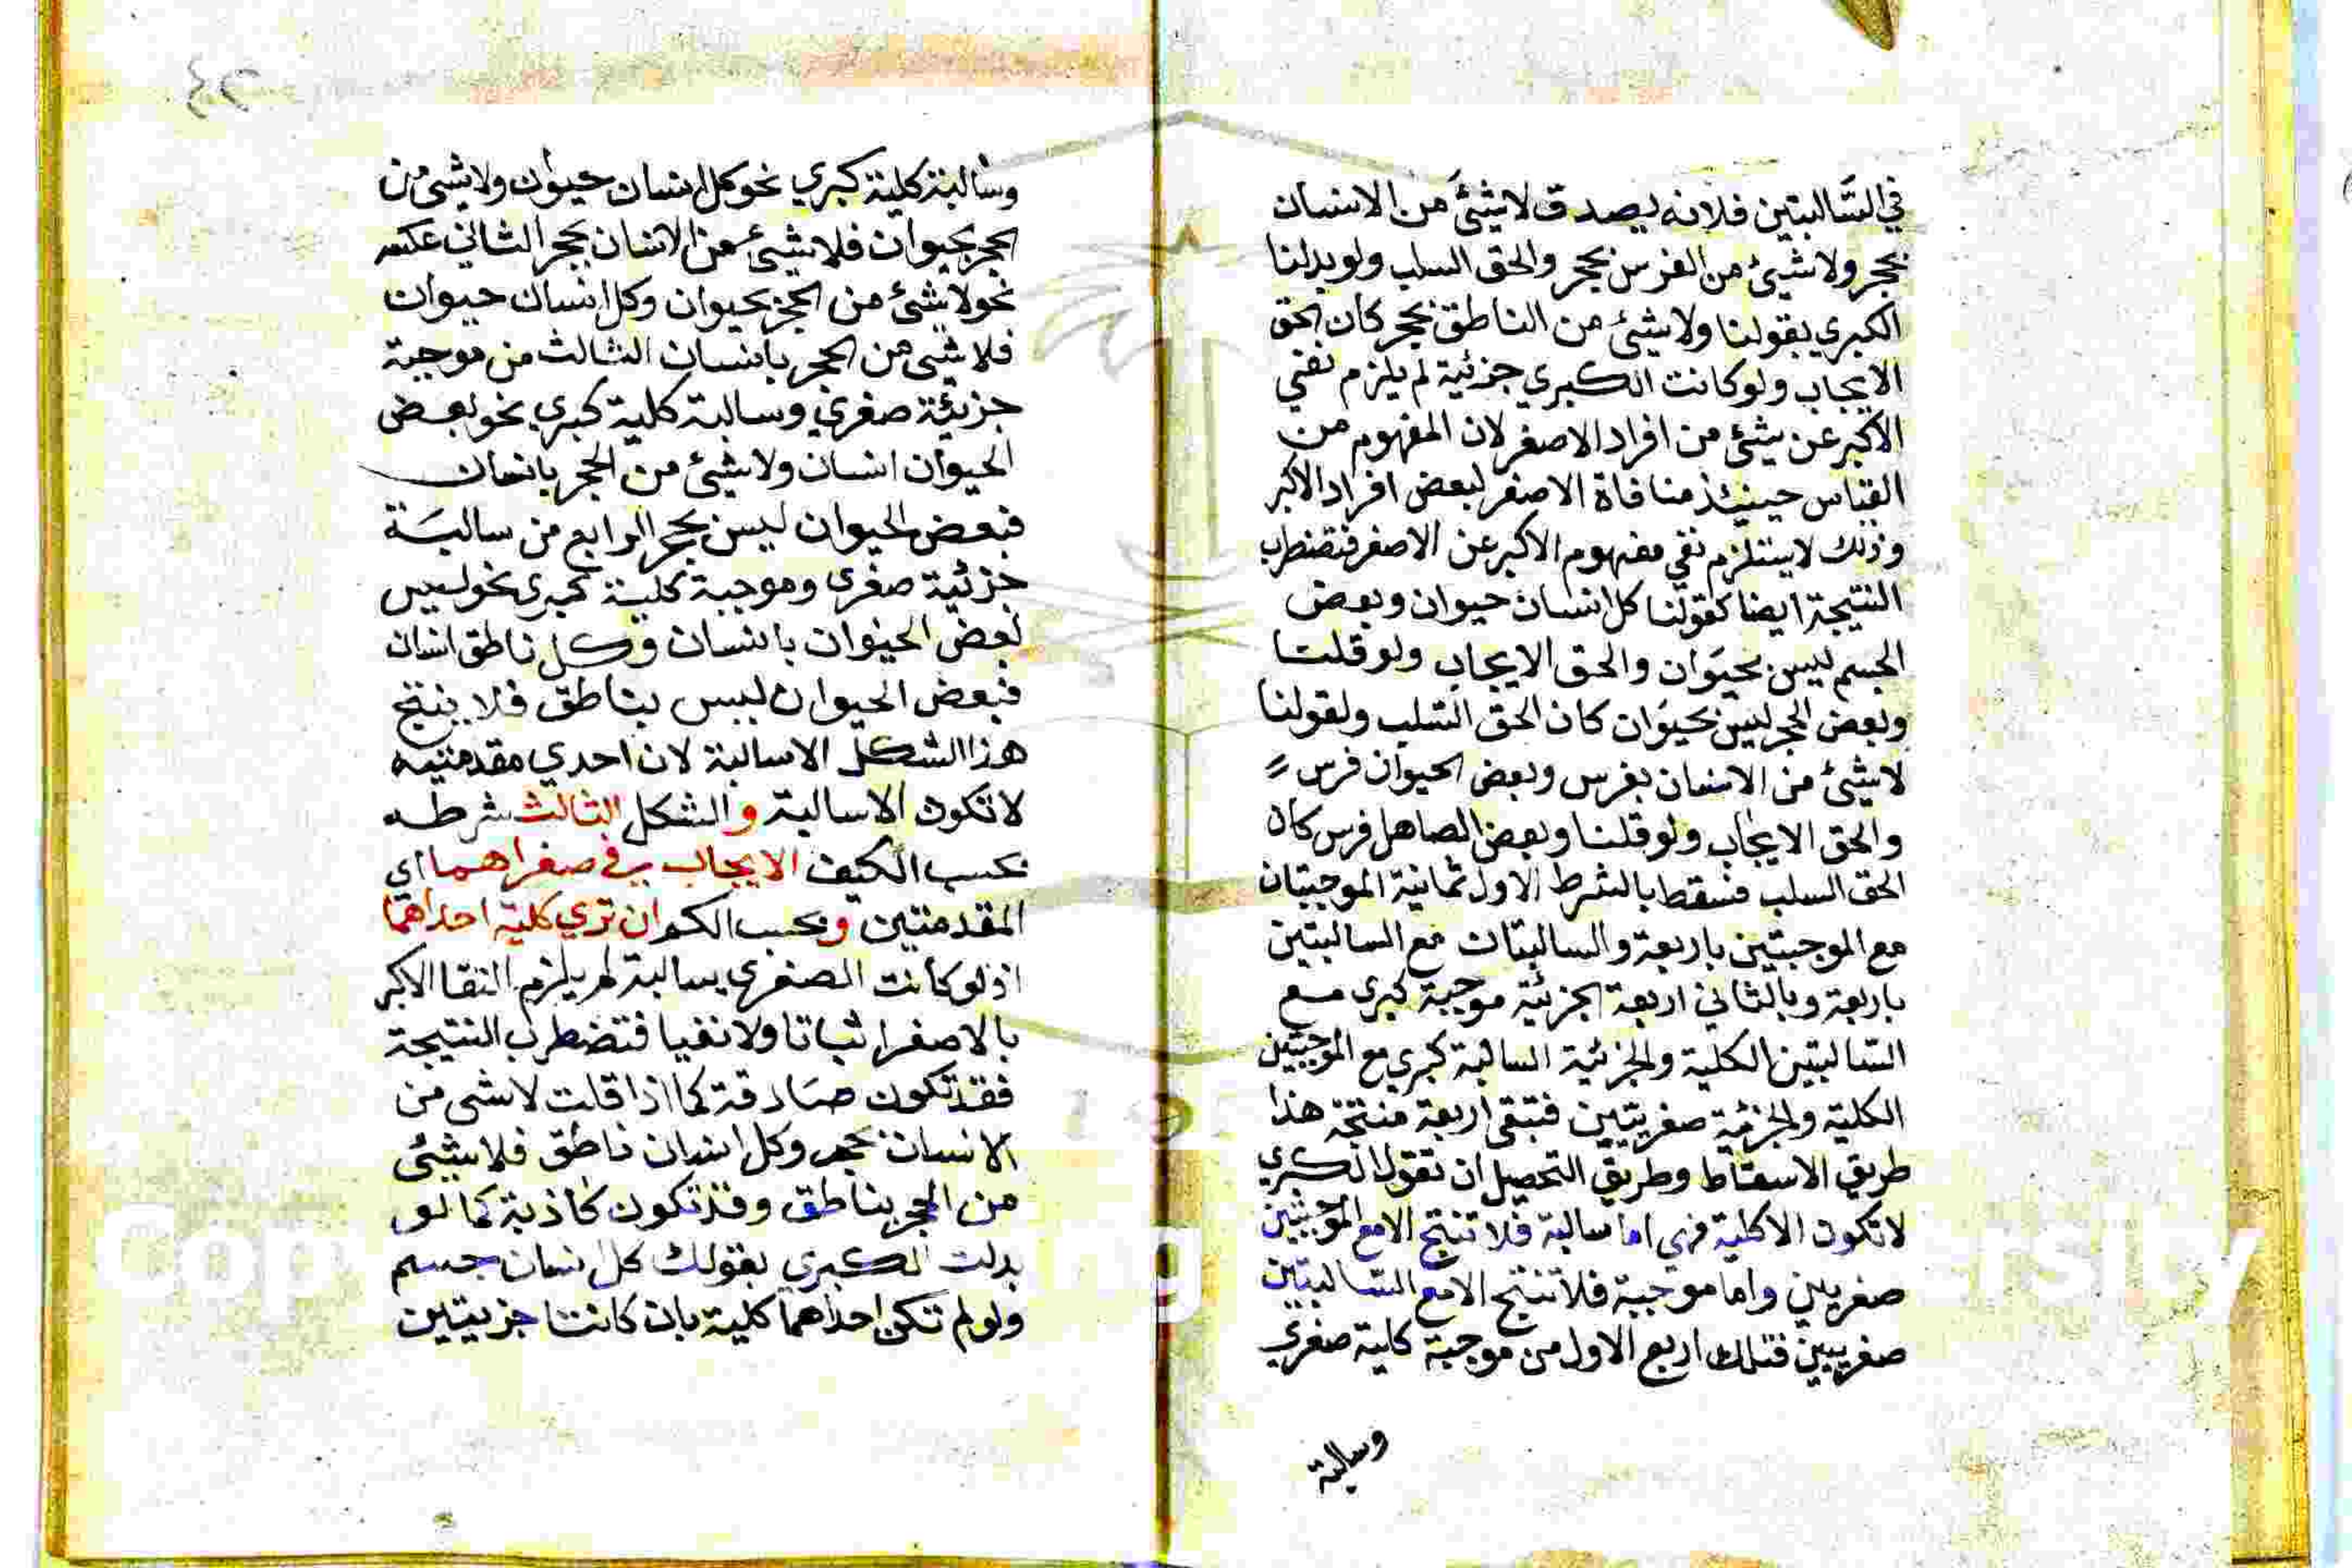 في السالبتين فلانه يصدق لا شيئ من الانسان
بحجر ولا شيئ من الفرس بحجر والحق السلب ولو بدلنا
الكبري بقولنا ولا شيئ من الناطق بحجر كان الحق
الايجاب ولو كانت الكبري جزئية لم يلزم نفي
الاكبر عن شيئ من افراد الاصغر لان المفهوم من
القياس حينئذ منافاة الاصغر لبعض افراد الاكبر
وذلك لا يستلزم نفي مفهوم الاكبر عن الاصغر فتضطرب
النتيجة ايضا كقولنا كل انسان حيوان وبعض
الجسم ليس بحيوان والحق الايجاب ولو قلت
وبعض الحجر ليس بحيوان كان الحق السلب ولقولنا
لا شيئ من الانسان بفرس وبعض الحيوان فرس
والحق الايجاب ولو قلنا وبعض الصاهل فرس كان
الحق السلب فسقط بالشرط الاول ثمانية الموجبتان
مع الموجبتين باربعة والسالبتان مع السالبتين
باربعة وبالثاني اربعة الجزئية موجبة كبري مع
السالبتين الكلية والجزئية السالبة كبري مع الموجبتين
الكلية والجزئية صغريتين فتبقي اربعة منتجة هذا
طريق الاسقاط وطريق التحصيل ان تقول الكبري
لا تكون الا كلية فهي اما سالبة فلا تنتج الا مع الموجبتين
صغريين واما موجبة فلا تنتج الا مع السالبتين
صغريين فتلك اربع الاول من موجبة كلية صغري
وسالبة
٢٤
وسالبة كلية كبري نحو كل انسان حيوان ولا شيئ من
الحجر بحيوان فلا شيئ من الانسان بحجر الثاني عكسه
نحو لا شيئ من الحجر بحيوان وكل انسان حيوان
فلا شيئ من الحجر بانسان الثالث من موجبة
جزئية صغري وسالبة كلية كبري نحو بعض
الحيوان انسان ولا شيئ من الحجر بانسان
فبعض الحيوان ليس بحجر الرابع من سالبة
جزئية صغري وموجبة كلية كبري نحو ليس
بعض الحيوان بانسان وكل ناطق انسان
فبعض الحيوان ليس بناطق فلا ينتج
هذا الشكل الا سالبة لان احدي مقدمتيه
لا تكون الا سالبة والشكل الثالث شرطه
بحسب الكيف الايجاب في صغراهما اي
المقدمتين وبحسب الكم ان تري كلية احداهما
اذ لو كانت الصغري سالبة لم يلزم التقا الاكبر
بالاصغر اثباتا ولا نفيا فتضطرب النتيجة
فقد تكون صادقة كما اذا قلت لا شي من
الانسان بحجر وكل انسان ناطق فلا شيئ
من الحجر بناطق وقد تكون كاذبة كما لو
بدلت الكبري بقولك كل انسان جسم
ولو لم تكن احداهما كلية بان كانتا جزيتين